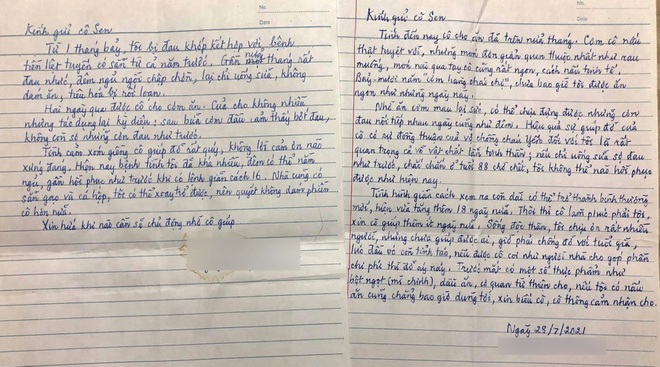 No.
Date
Kính gửi cô Sen
Từ 1 tháng bảy, tôi bị đau khớp kết hợp với bệnh
tiền liệt tuyến có sẵn từ cả năm trước. Gần một tháng rất
đau nhức, đêm ngủ ngồi chập chờn, lại chỉ uống sữa, không
dám ăn, tiêu hóa bị rối loạn.
Hai ngày qua được cô cho cơm ăn. Của cho không nhiều
nhưng tác dụng lại kỳ diệu; sau bữa cơm đầu cảm thấy bớt đau,
không còn sợ những cơn đau như trước.
Tình cảm xóm giềng cô giúp đỡ rất quý, không lời cảm ơn nào
xứng đáng. Hiện nay bệnh tình tôi đã khá nhiều, đêm có thể nằm
ngủ, gần hồi phục như trước khi có lệnh giãn cách 16. Nhà cũng có
sẵn gạo và cá hộp, tôi có thể xoay trở được, nên quyết không dám phiền
cô hơn nữa.
Xin hứa khi nào cần sẽ chủ động nhờ cô giúp
No.
Date
Kính gửi cô Sen
Tính đến nay cô cho ăn đã trên nửa tháng. Cơm cô nấu
thật tuyệt vời, những món đơn giản quen thuộc nhất như rau
muống, món nào qua tay cô cũng rất ngon, cách nấu tinh tế.
Bảy mươi năm "cơm hàng cháo chợ", chưa bao giờ tôi được ăn
ngon như những ngày nay.
Nhờ ăn cơm mau lại sức, có thể chịu đựng được những cơn
đau nối tiếp nhau ngày cũng như đêm. Hiệu quả sự giúp đỡ của
cô có sự đồng thuận của vợ chồng cháu Yến đối với tôi là rất
quan trọng cả về vật chất lẫn tinh thần; nếu chỉ uống sữa sợ đau
như trước, chắc chắn ở tuổi 88 chờ chết, tôi không thể nào hồi phục
được như hiện nay.
Tình hình giãn cách xem ra còn dài có thể trở thành bình thường
mới, hiện vừa tăng thêm 18 ngày nữa. Thôi thì cô làm phước phải tội,
xin cô giúp thêm ít ngày nữa. Sống độc thân, tôi chịu ơn rất nhiều
người, nhưng chưa giúp được ai, giờ phải chống đỡ với tuổi già,
lúc đầu óc còn tỉnh táo, nếu được cô coi như người nhà cho góp phần
chi phí thì đỡ áy náy. Trước mắt có một số thực phẩm như
bột ngọt (mì chính), dầu ăn, có quan từ thiện cho, nếu tôi có nấu
ăn cũng chẳng bao giờ dùng tới, xin biếu cô, cô thông cảm nhận cho.
Ngày 28/7/2021